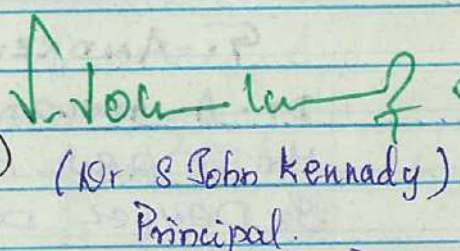 (Dr S John Kennady)
Principal.